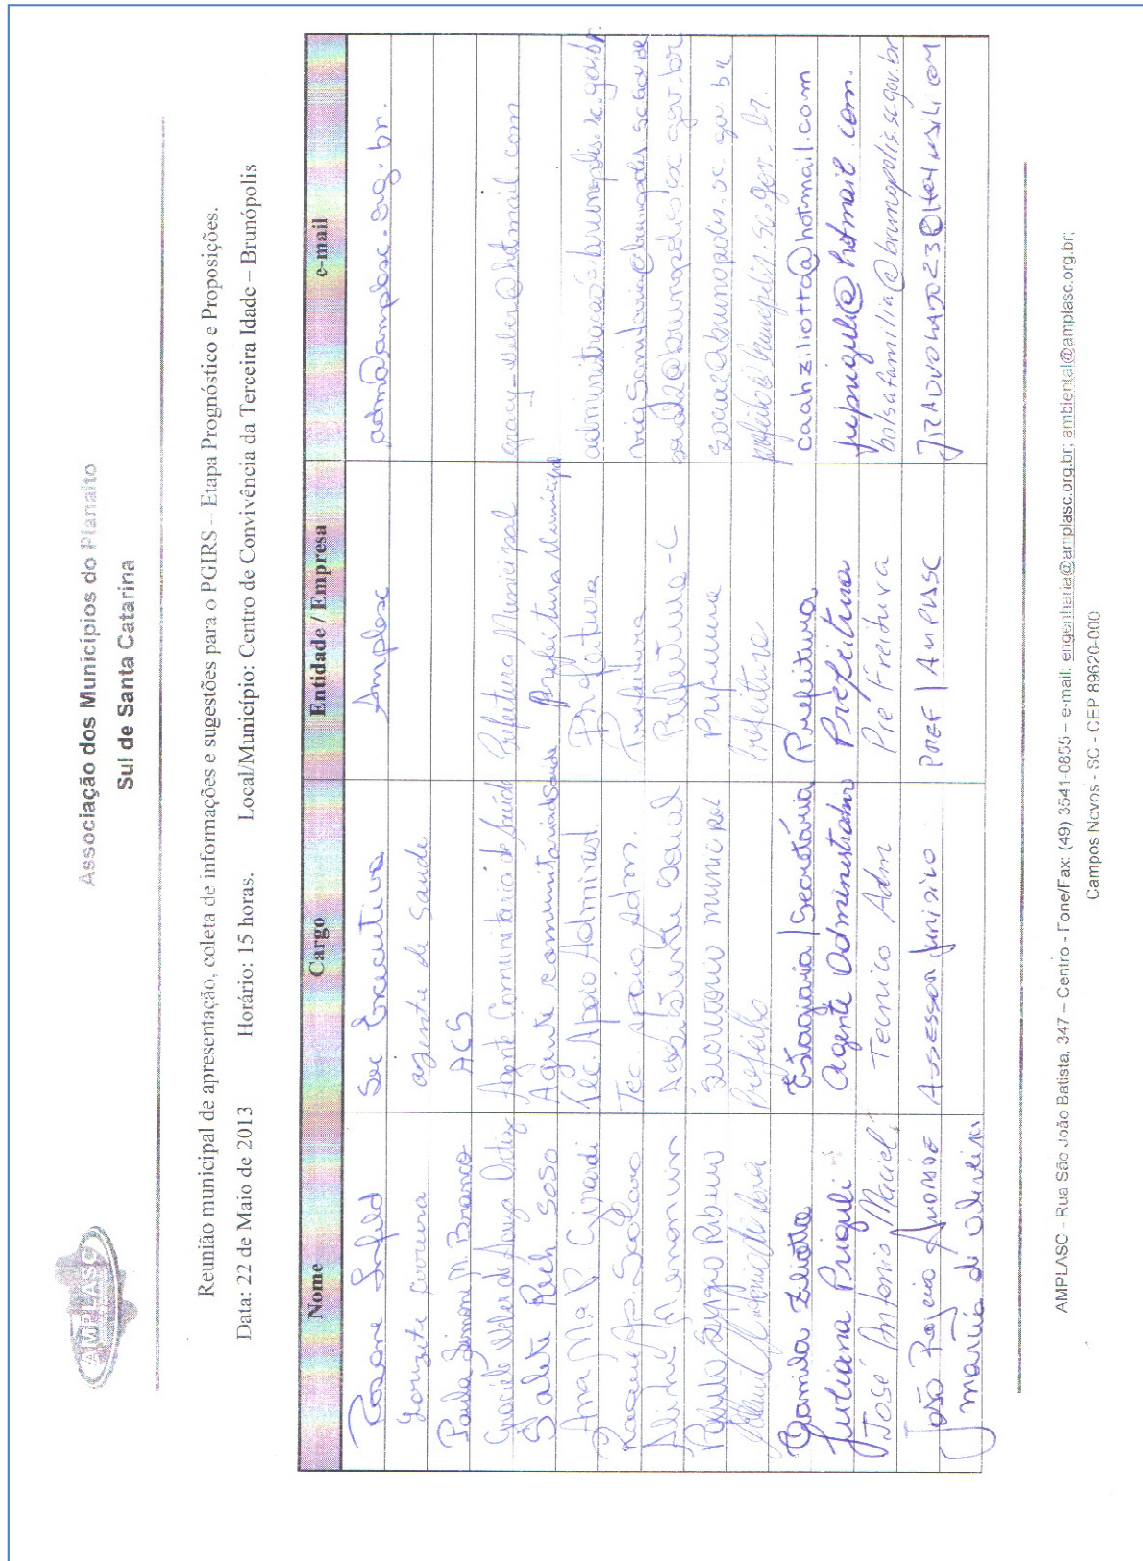 AMPLASC
Associação dos Municípios do Planalto
Sul de Santa Catarina
Reunião municipal de apresentação, coleta de informações e sugestões para o PGIRS – Etapa Prognóstico e Proposições.
Data: 22 de Maio de 2013 Horário: 15 horas. Local/Município: Centro de Convivência da Terceira Idade – Brunópolis
Nome Cargo Entidade / Empresa e-mail
Rosane Sec Executiva Amplasc adm@amplasc.org.br.
agente de Saude
Paula Simoni M. Branco ACS
Graciele de Souza Ortiz Agente Comunitario de Saúde Prefeitura Municipal
Salete Rech Soso Agente comunitaria de Saude Prefeitura Municipal
Ana Mª P. Girardi Tec. Apoio Administ Prefeitura administracao@brunopolis.sc.gov.br
Tec Apoio Adm. Prefeitura
Assistente Social saude@brunopolis.sc.gov.br
Prefeitura social@brunopolis.sc.gov.br
Prefeito Prefeitura prefeito@brunopolis.sc.gov.br
Camila Ziliotto Estagiaria/Secretária Prefeitura caahziliotto@hotmail.com
Juliana Prigoli Agente Administrativo Prefeitura juprigoli@hotmail.com.
José Antonio Maciel Tecnico Adm bolsafamilia@brunopolis.sc.gov.br
João Rogerio Assessor Juridico PREF/AMPLASC
Marcia de Oliveira
AMPLASC - Rua São João Batista, 347 – Centro - Fone/Fax: (49) 3541-0855 – e-mail: engenharia@amplasc.org.br; ambiental@amplasc.org.br;
Campos Novos - SC - CEP 89620-000